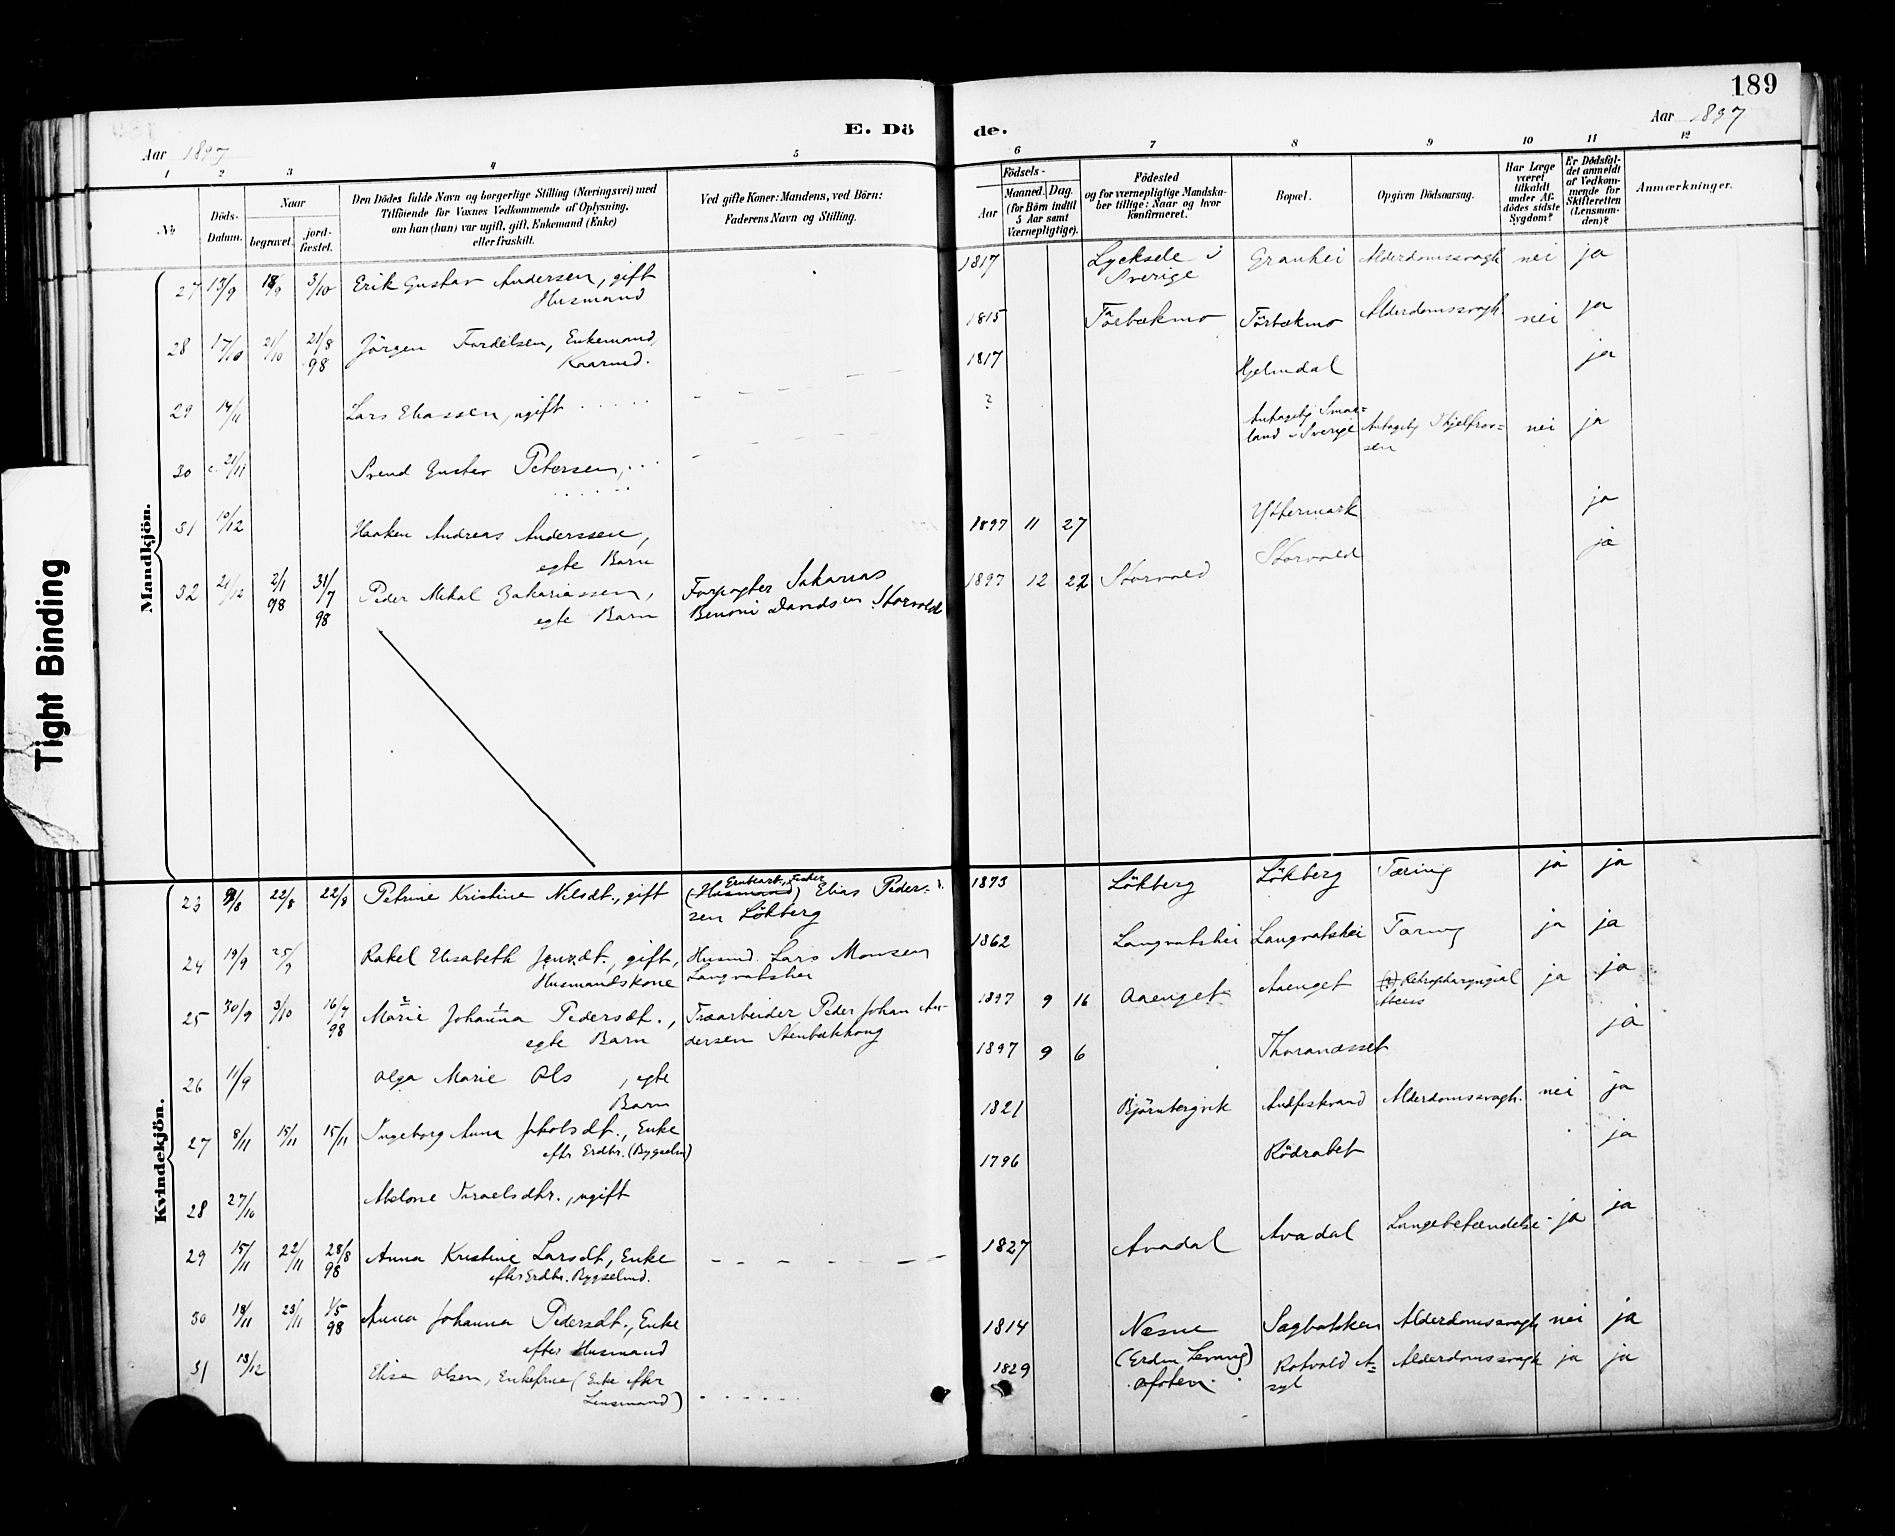 189
E. Dö de.
Aar 1897
Aar 1897
1 2 3 4 5 6 7 8 9 10 11 12
No
Döds-Datum.
Naar
begravet.
jord-fæstet.
Den Dödes fulde Navn og borgerlige Stilling (Næringsvei) med
Tilföiende for Voxnes Vedkommende af Oplysning,
om han (hun) var ugift, gift, Enkemand (Enke)
eller fraskilt.
Ved gifte Koner: Mandens, ved Börn:
Faderens Navn og Stilling.
Födsels-
Aar
Maaned. Dag.
(for Börn indtil
5 Aar samt
Værnepligtige).
Födested
og for værnepligtige Mandska-
ber tillige: Naar og hvor
konfirmeret.
Bopæl.
Opgiven Dödsaarsag.
Har Læge
været
tilkaldt
under Af-
dödes sidste
Sygdom?
Er Dödsfal-
det anmeldt
af Vedkom-
mende for
Skifteretten
(Lensman-
den)?
Anmærkninger.
Tight Binding
Mandkjön.
27 13/9 18/9 3/10 Erik Gustav Andersen, gift
Husmand
1817 Lycksele i Sverige Granhei Alderdomssvagh. nei ja
28 17/10 21/10 21/8 98 Jörgen Fordelsen, Enkemand,
Kaarmd.
1815 Törbækmo Törbækmo Alderdomssvagh. nei ja
29 14/11 Lars Eliassen, ugift
1817 Hjelmdal ja
30 c. 21/11 Svend Gustav Petersen, ...
? Antagelig Smaa-
land i Sverige Antagelig Ihjelfros-
sen nei ja
31 10/12 Haaken Andreas Anderssen,
egte Barn
1897 11 27 Yttermark ja
32 21/12 2/1 98 31/7 98 Peder Mikal Zakariassen,
egte Barn
Forpagter Sakarias
Benoni Davidsen Storvold
1897 12 22 Storvold Storvold ja
Kvindekjön.
23 9/8 22/8 22/8 Petrine Kristine Nilsdt., gift
(Husmand) Elias Peder-
sen Lökberg
1873 Lökberg Lökberg Tæring ja ja
24 19/9 25/9 Rakel Elisabeth Jensdt., gift,
Husmandskone
Husmd. Lars Monsen
Langvatshei
1862 Langvatshei Langvatshei Tæring ja ja
25 30/9 3/10 16/7 98 Marie Johanna Pedersdt.,
egte Barn
Træarbeider Peder Johan An-
dersen Stenbækhaug
1897 9 16 Aaenget Aaenget (?) Retropharyngial ja ja
26 11/9 Olga Marie Ols , egte
Barn
1897 9 6 Thoranæsset ja
27 8/11 15/11 15/11 Ingeborg Anna Jakobsdt., Enke
efter Erdbr. (Bygselm)
1821 Björnbergvik Andfiskvand Alderdomssvagh. nei ja
28 27/10 Abelone Israelsdtr., ugift
1796 Rödrabet ja
29 15/11 22/11 28/8 98 Anna Kristine Larsdt., Enke
efter Erdbr. Bygselmd.
1827 Avadal Avadal Lungebetændelse ja ja
30 18/11 23/11 1/5 98 Anna Johanna Pedersdt., Enke
efter Husmand
1814 Næsne Sagbakken Alderdomssvagh nei ja
31 13/12 Elise Olsen, Enkefrue (Enke efter
Lensmand)
1829 Rotvold A-
syl Alderdomssvagh ja ja